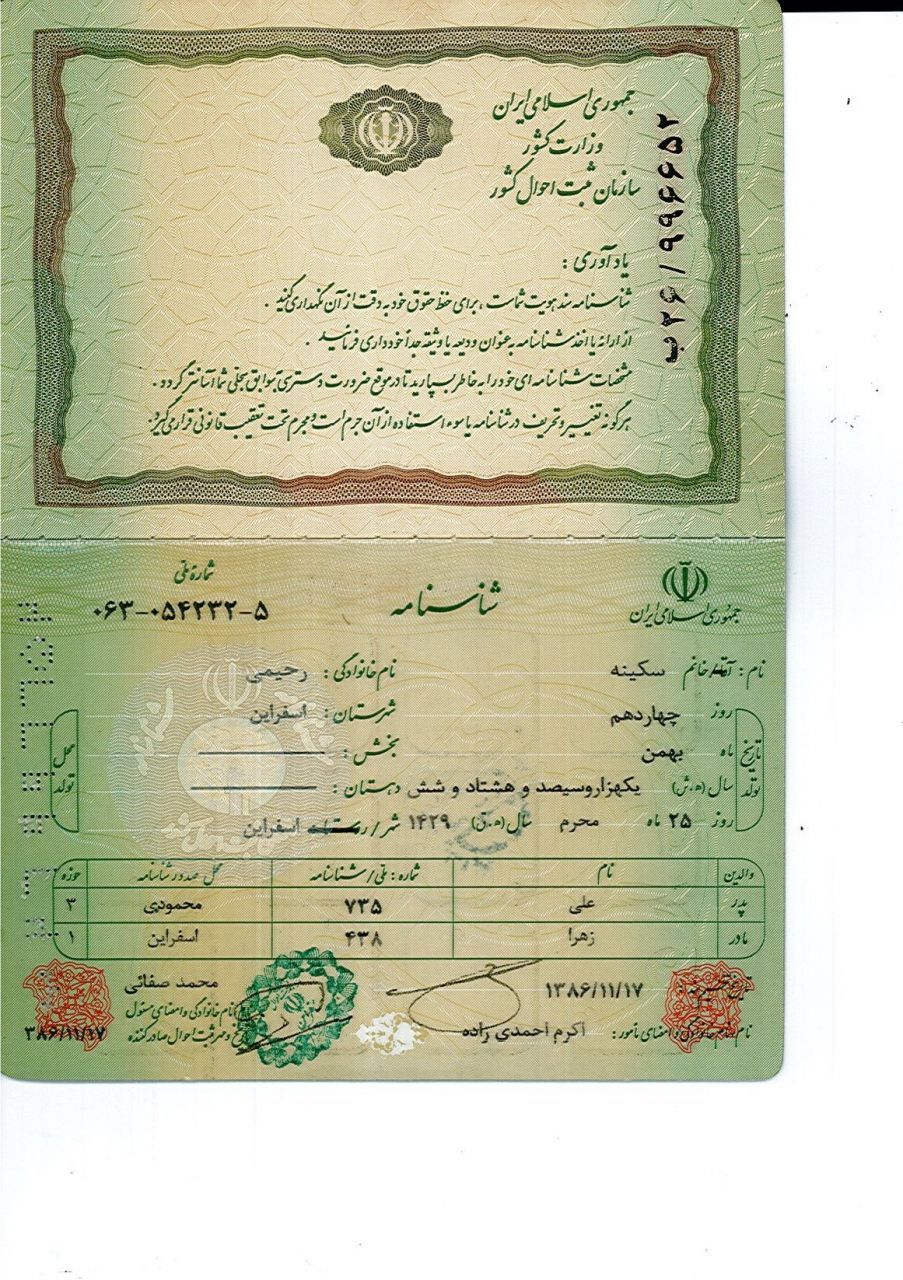 جمهوری اسلامی ایران
وزارت کشور
سازمان ثبت احوال کشور
ب۲۶/۹۹۶۶۵۲
یادآوری :
شناسنامه سند هویت شماست ، برای حفظ حقوق خود به دقت از آن نگهداری کنید .
از ارائه یا اخذ شناسنامه به عنوان ودیعه یا وثیقه جداً خودداری فرمائید .
مشخصات شناسنامه ای خود را به خاطر بسپارید تا در موقع ضرورت دسترسی به سوابق سجلی شما آسانتر گردد .
هرگونه تغییر و تحریف در شناسنامه یا سوء استفاده از آن جرم است و مجرم تحت تعقیب قانونی قرار می گیرد .
جمهوری اسلامی ایران
شناسنامه
شماره ملی
۰۶۳-۰۵۴۲۳۲-۵
نام : آقا/خانم سکینه نام خانوادگی : رحیمی
تاریخ تولد
روز چهاردهم شهرستان : اسفراین
ماه بهمن بخش :
سال (ه.ش) یکهزاروسیصد و هشتاد و شش دهستان :
روز ۲۵ ماه محرم سال (ه.ق) ۱۴۲۹ شهر / روستا اسفراین
محل تولد
والدین نام شماره : ملی / شناسنامه محل صدور شناسنامه حوزه
پدر علی ۷۳۵ محمودی ۳
مادر زهرا ۴۳۸ اسفراین ۱
تاریخ تنظیم سند : ۱۳۸۶/۱۱/۱۷ محمد صفائی
نام خانوادگی و امضای مأمور : اکرم احمدی زاده
نام خانوادگی و امضای مسئول
و مهر ثبت احوال صادرکننده
۱۳۸۶/۱۱/۱۷